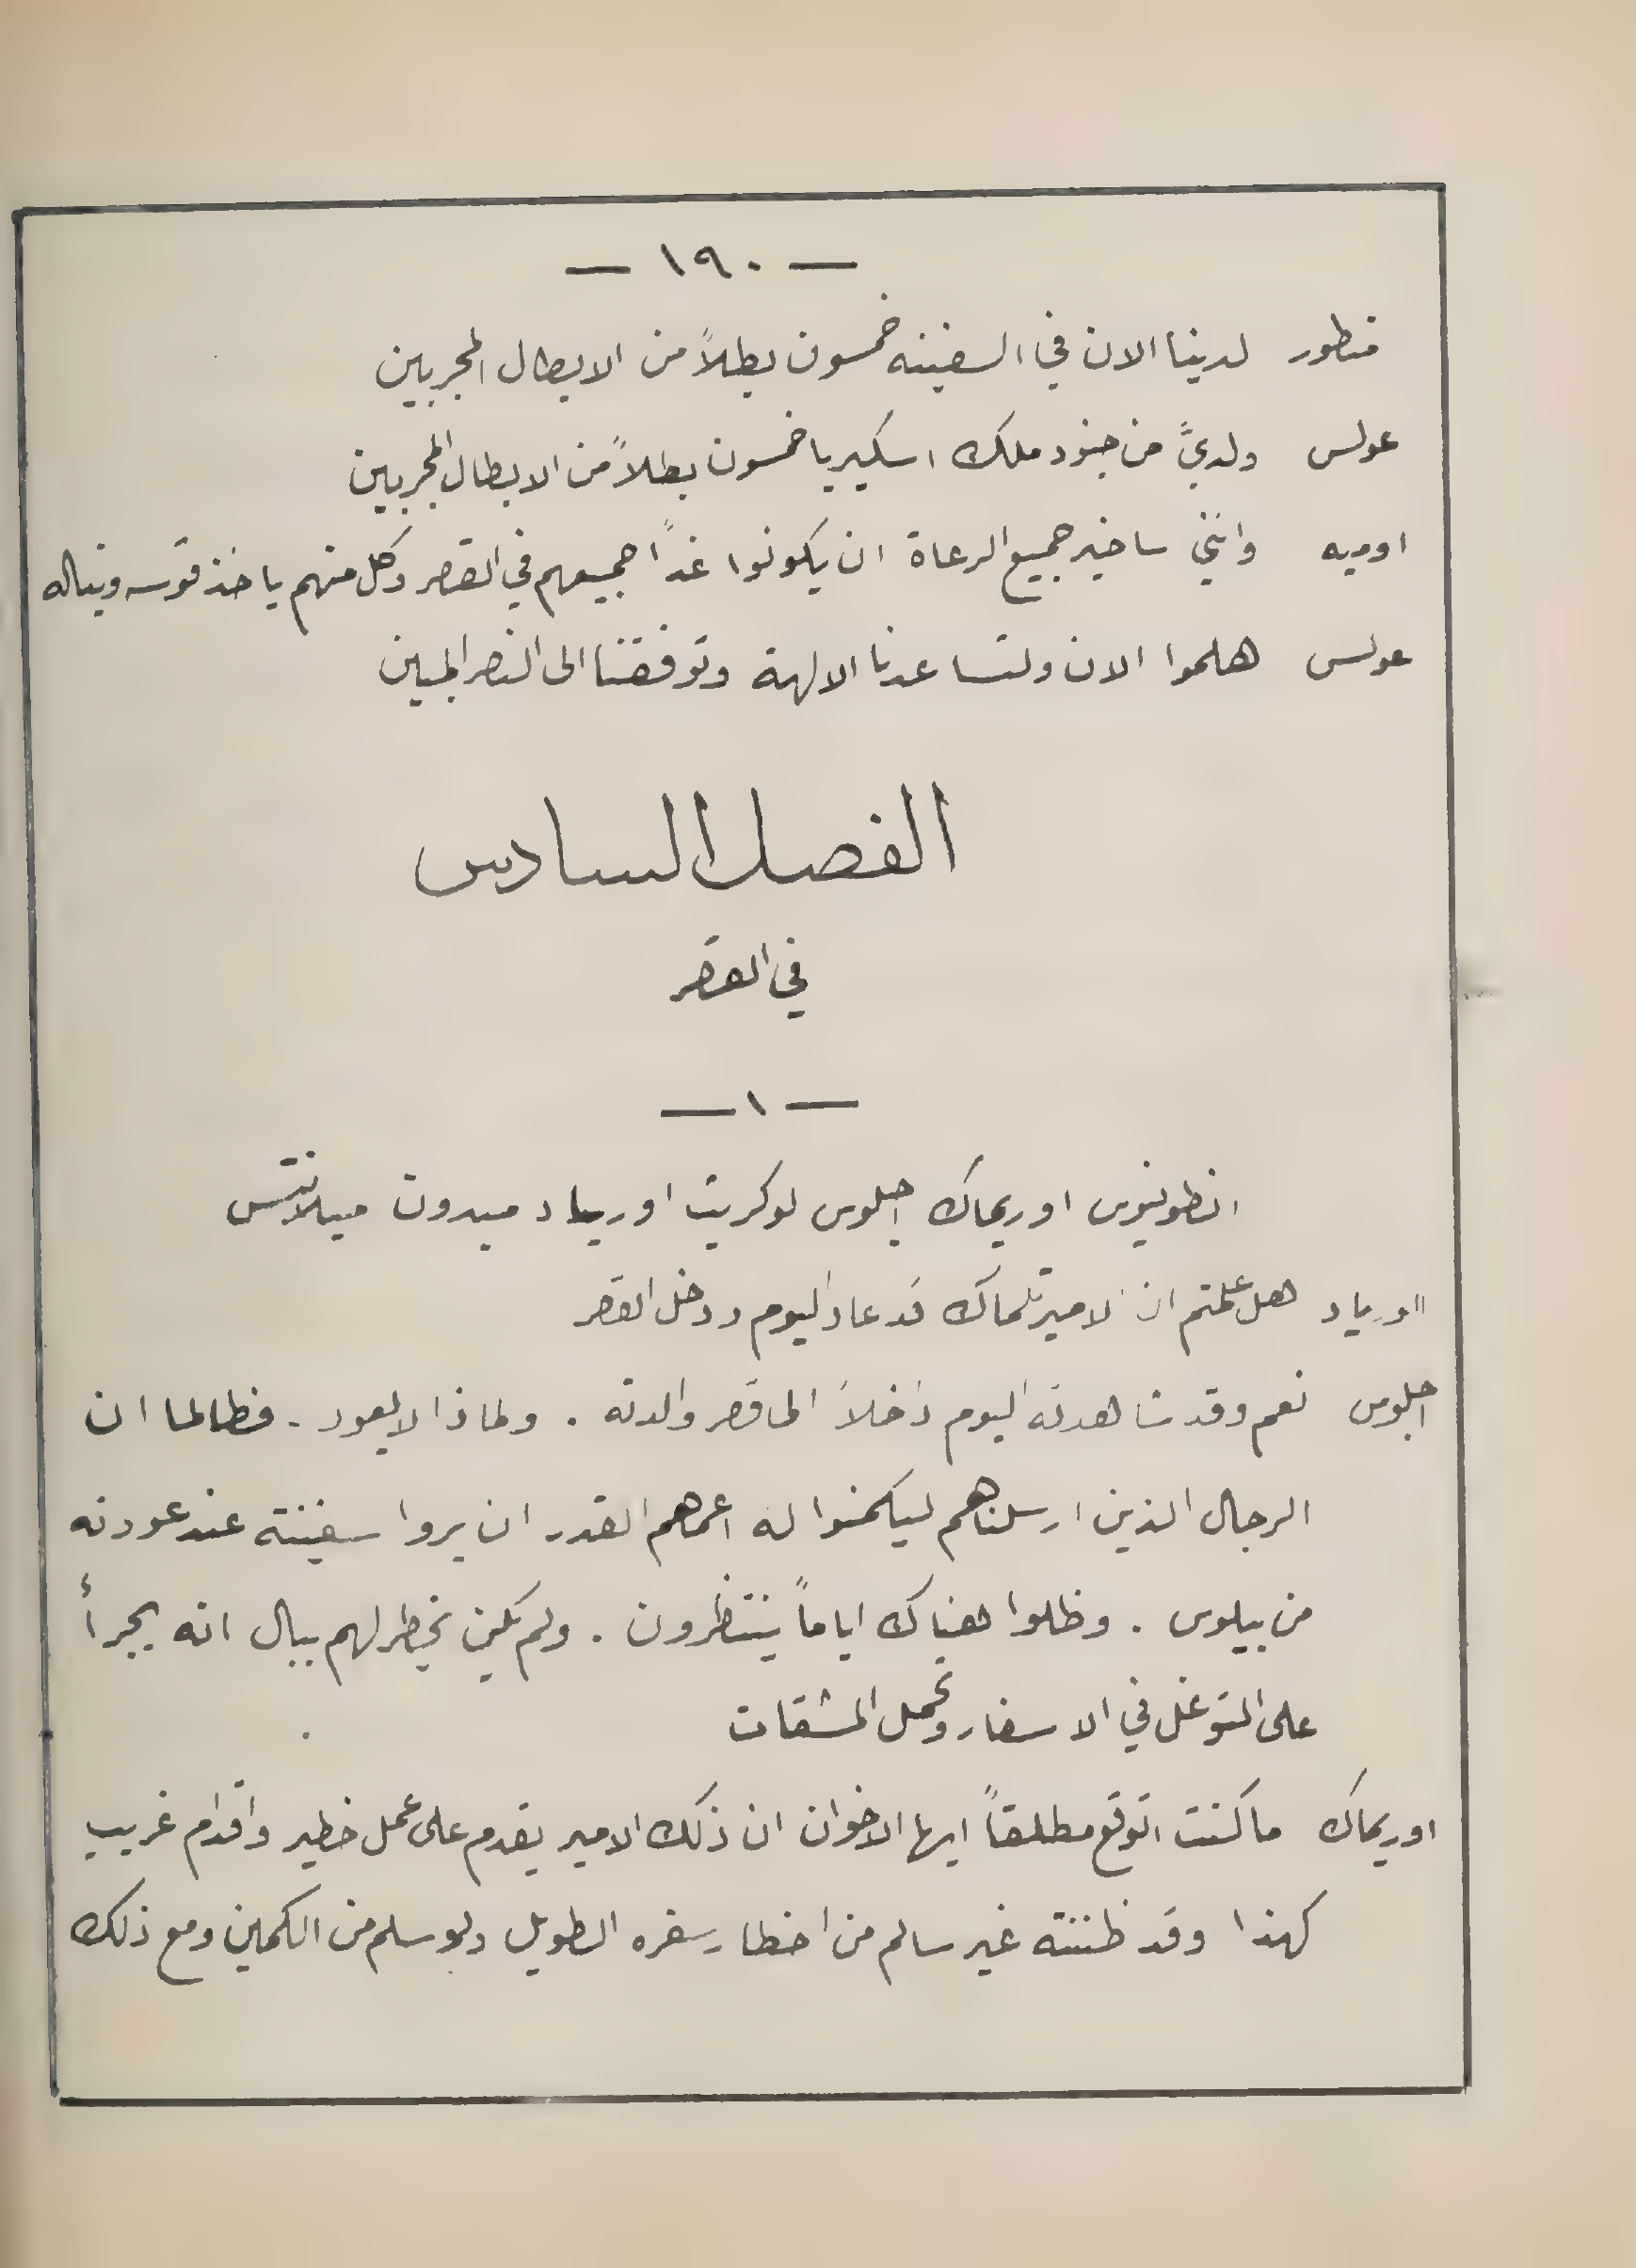 — ١٩٠ —
منطور لدينا الان في السفينه خمسون بطلاً من الابطال المجربين
عولس ولديَّ من جنود ملك اسكيريا خمسون بطلاً من الابطال المجربين
اوميه وانني ساخبر جميع الرعاة ان يكونوا غداً جميعهم في القصر وكل منهم ياخذ قوسه ونباله
عولس هلموا الان ولتساعدنا الالهة وتوفقنا الى النصر المبين
الفصل السادس
في القصر
— ١ —
انطونيوس اوريماك اجلوس لوكريت اورياد ميدون ميلانتس
اورياد هل علمتم ان الامير تلماك قد عاد اليوم ودخل القصر
اجلوس نعم وقد شاهدته اليوم داخلاً الى قصر والدته . ولماذا لا يعود . فطالما ان
الرجال الذين ارسلناهم ليكمنوا له اعماهم القدر ان يروا سفينته عند عودته
من بيلوس . وظلوا هناك اياماً ينتظرون . ولم يكن يخطر لهم ببال انه يجرأ
على التوغل في الاسفار وتحمل المشقات
اوريماك ما كنت اتوقع مطلقاً ايها الاخوان ان ذلك الامير يقدم على عمل خطير واقدام غريب
كهذا وقد ظننته غير سالم من اخطار سفره الطويل ولو سلم من الكمين ومع ذلك